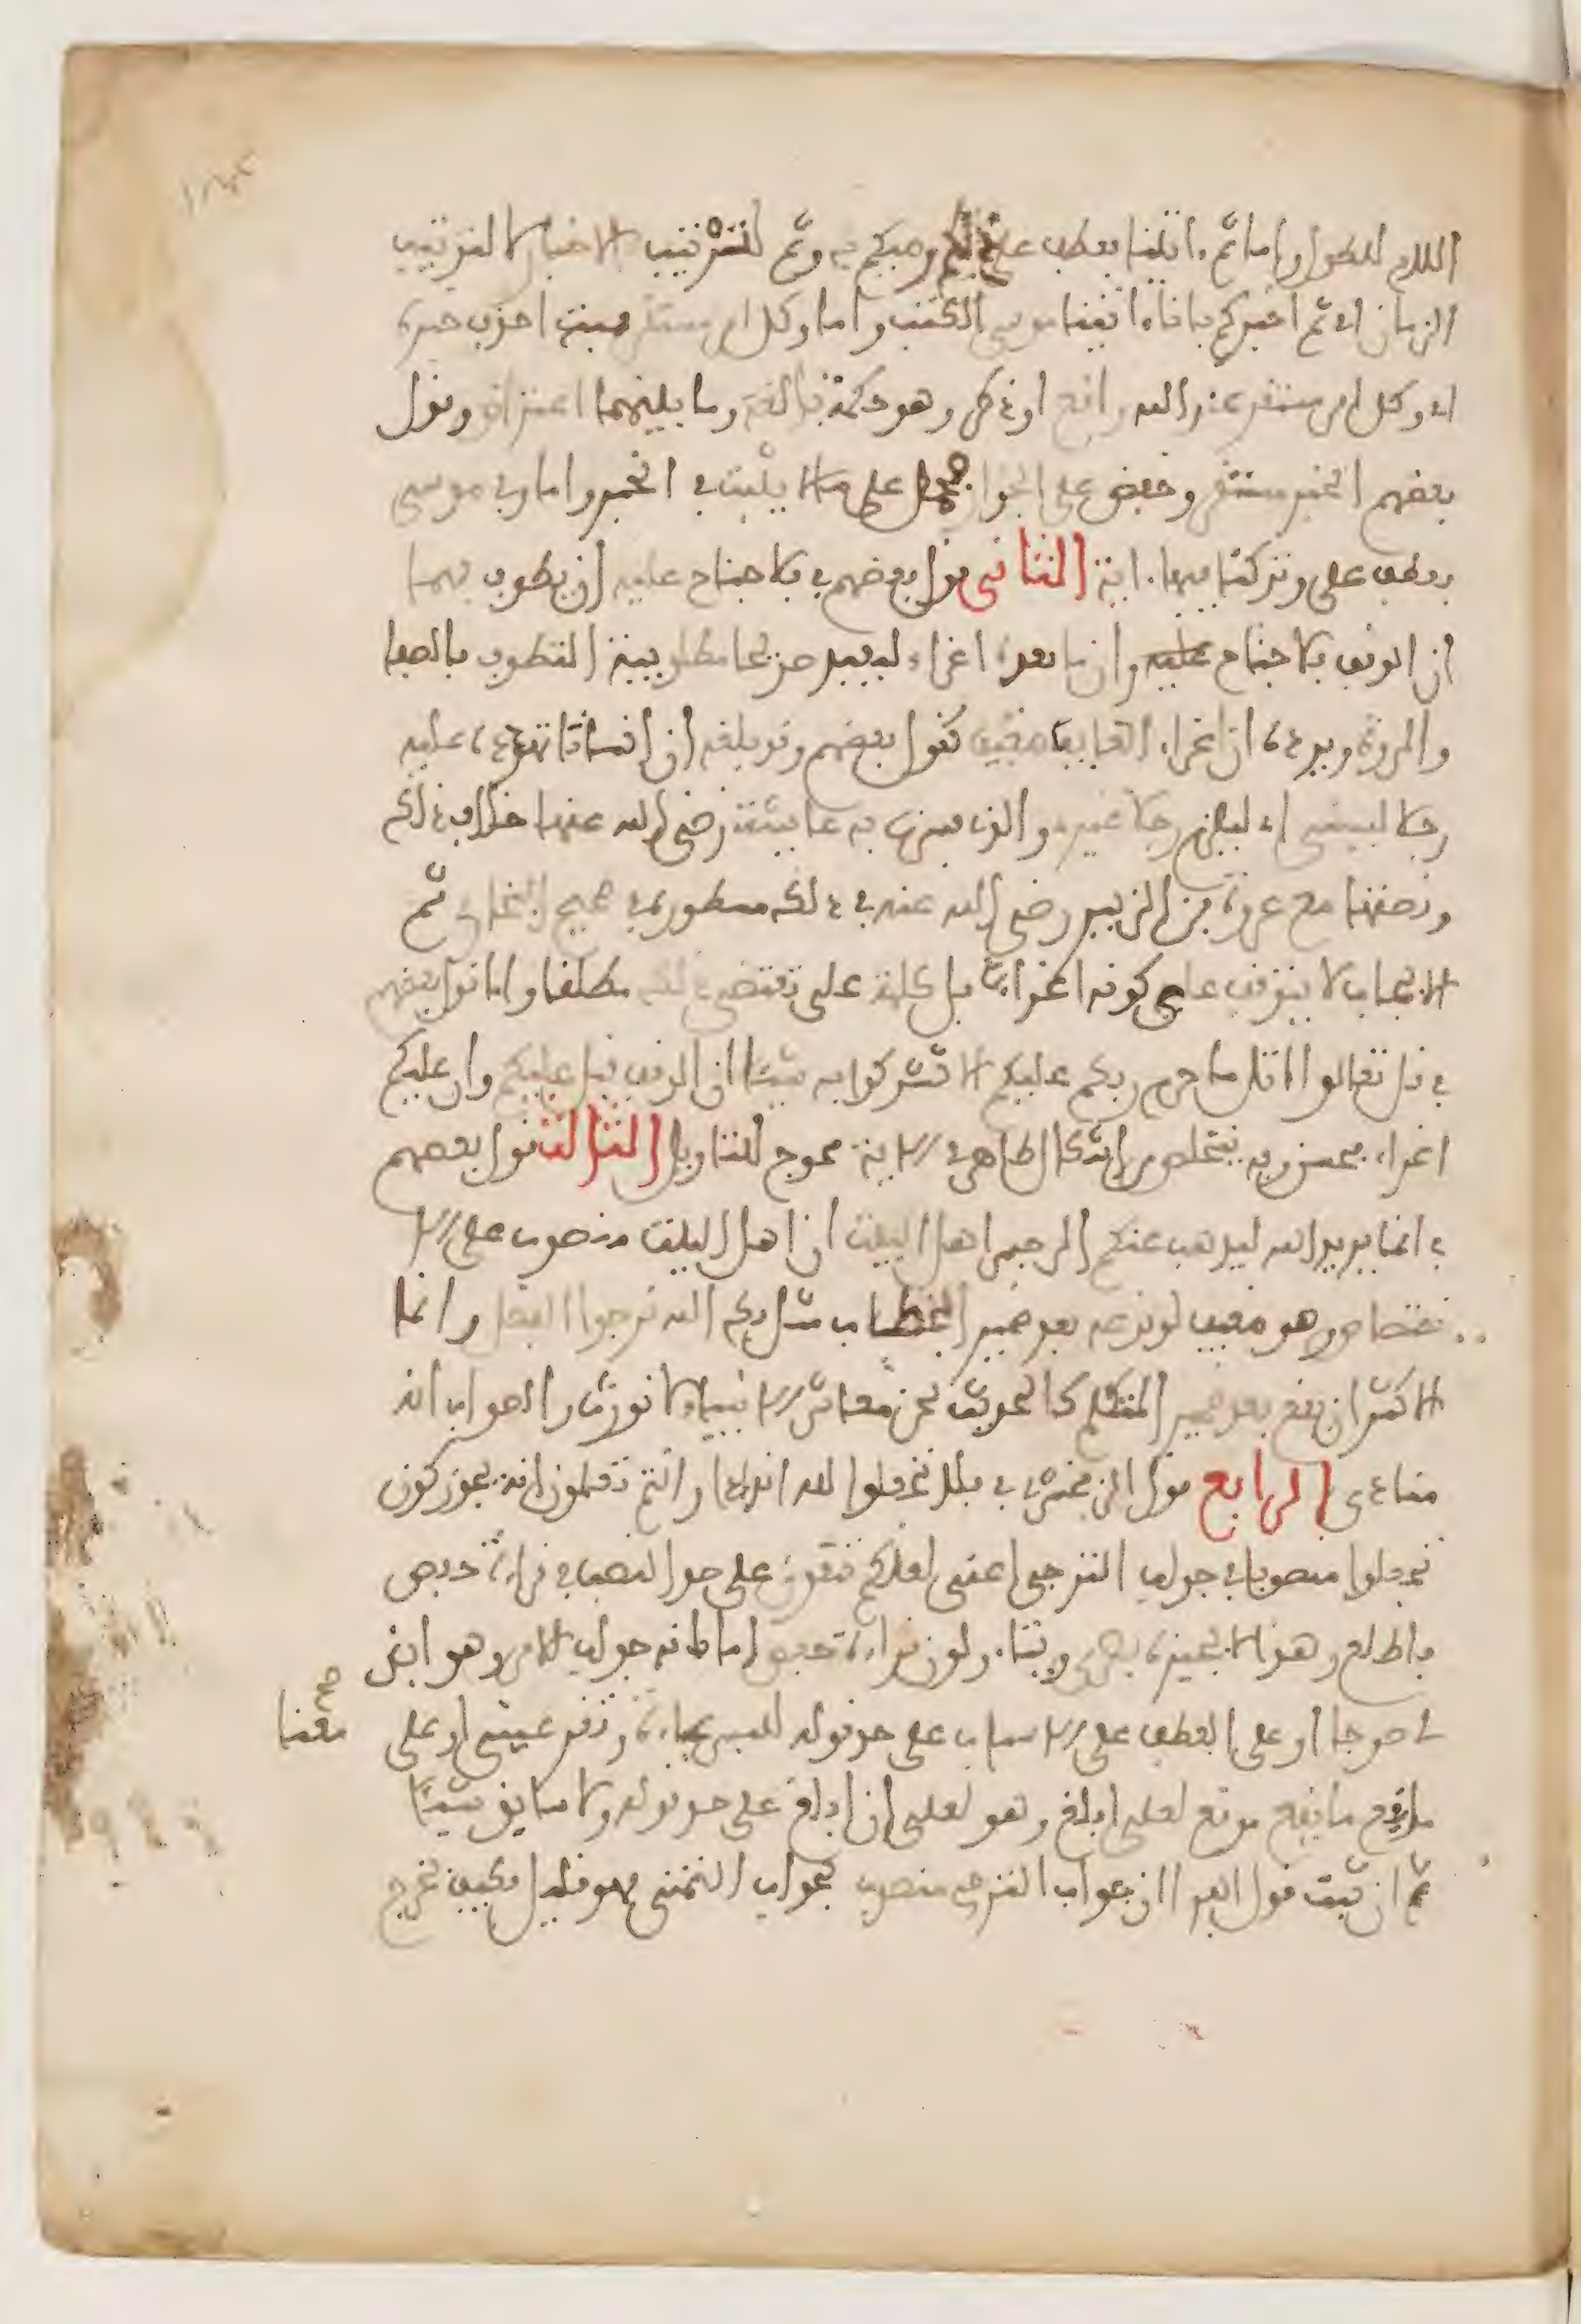 الكلام للطول واما ثم ءاتينا بعطف على ذلكم وصيكم به وثم لترتيب الاخبار لا لترتيب
الزمان اي ثم اخبركم بانا ءاتينا موسى الكتب واما وكل امر مستقر فمبتدا حذف خبره
اي وكل امر مستقر عند الله واقع او ذكر وهو حكمة بالغة وما بينهما اعتراض وقول
بعضهم الخبر مستقر وخفض على الجوار حمل على ما لا يثبت في الخبر واما وفي موسى
بعطف على وتركنا فيها ءاية الثاني قول بعضهم في فلا جناح عليه ان يطوف بهما
ان الوقف فلا جناح عليه وان ما بعده اغراء ليفيد صريحا مطلوبية التطوف بالصفا
والمروة ويرده ان اغراء الغايب ضعيف كقول بعضهم وقد بلغه ان انسانا تهدده عليه
رجلا ليسني اي ليلزم رجلا غيري والذي فسرت به عايشة رضي الله عنها خلاف ذلك
وقصتها مع عروة بن الزبير رضي الله عنه في ذلك مسطورة في صحيح البخاري ثم
الايجاب لا يتوقف على كونه اغراء بل كلمة على تقتضي ذلك مطلقا واما قول بعضهم
في قل تعالوا اتل ما حرم ربكم عليكم الا تشركوا به شيئا ان الوقف قبل عليكم وان عليكم
اغراء فحسن وبه يتخلص من اشكال ظاهر في الاية محوج للتاويل الثالث قول بعضهم
في انما يريد الله ليذهب عنكم الرجس اهل البيت ان اهل البيت منصوب على الا
ختصاص وهو ضعيف لوقوعه بعد ضمير الخطاب مثل بك الله نرجوا الفضل وانما
الاكثر ان يقع بعد ضمير المتكلم كالحديث نحن معاشر الانبياء لا نورث والصواب انه
منادى الرابع قول الزمخشري في فلا تجعلوا لله اندادا وانتم تعلمون انه يجوز كون
تجعلوا منصوبا في جواب الترجي اعني لعلكم تتقون على حد النصب في قراءة حفص
فاطلع وهذا لا يجيزه بصري ويتاولون قراءة حفص اما على انه جواب للامر وهو ابن
لي صرحا او على العطف على الاسباب على حد قوله للبس عباءة وتقر عيني او على معنا صح
ما يقع موقع لعلي ابلغ وهو لعلي ان ابلغ على حد قوله ولا سابق شيئا
ثم ان ثبت قول الفرا ان جواب الترجي منصوب كجواب التمني فهو قليل فكيف تخرج